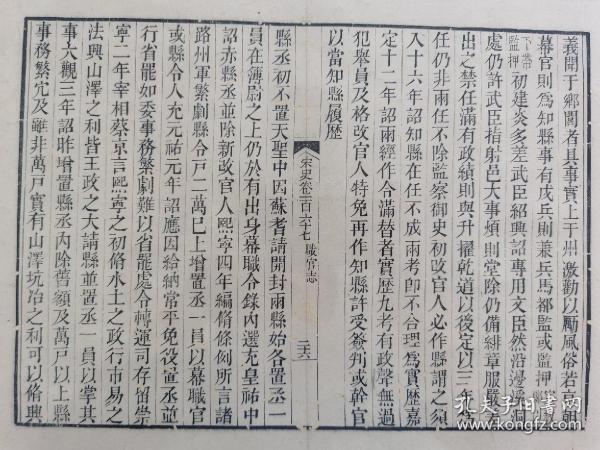 義聞于鄉閭者具事實上于州激勸以勵風俗若京朝
幕官則爲知縣事有戍兵則兼兵馬都監或監押
下帶
監押初建炎多差武臣紹興詔專用文臣然沿邊溪洞
處仍許武臣指射邑大事煩則堂除仍備緋章服嚴差
出之禁任滿有政績則與升擢乾道以後定以三年爲
任仍非兩任不除監察御史初改官人必作縣謂之須
入十六年詔知縣在任不成兩考即不合理爲實歷嘉
定十二年詔兩經作令滿替者實歷九考有政聲無過
犯舉員及格改官人特免再作知縣許受簽判或幹官
以當知縣履歷
宋史卷一百六十七 職官志
二六
縣丞初不置天聖中因蘇耆請開封兩縣始各置丞一
員在薄尉之上仍於有出身幕職令錄內選充皇祐中
詔赤縣丞並除新改官人熙寧四年編脩條例所言諸
路州軍繁劇縣令戶二萬已上增置丞一員以幕職官
或縣令人充元祐元年詔應因給納常平免役置丞並
行省罷如委事務繁劇難以省罷處令轉運司存留崇
寧二年宰相蔡京言熙寧之初脩水土之政行市易之
法興山澤之利皆王政之大請縣並置丞一員以掌其
事大觀三年詔昨增置縣丞內除舊額及萬戶以上縣
事務繁冗及雖非萬戶實有山澤坑冶之利可以脩興
孔夫子旧书网
book.kongfz.com